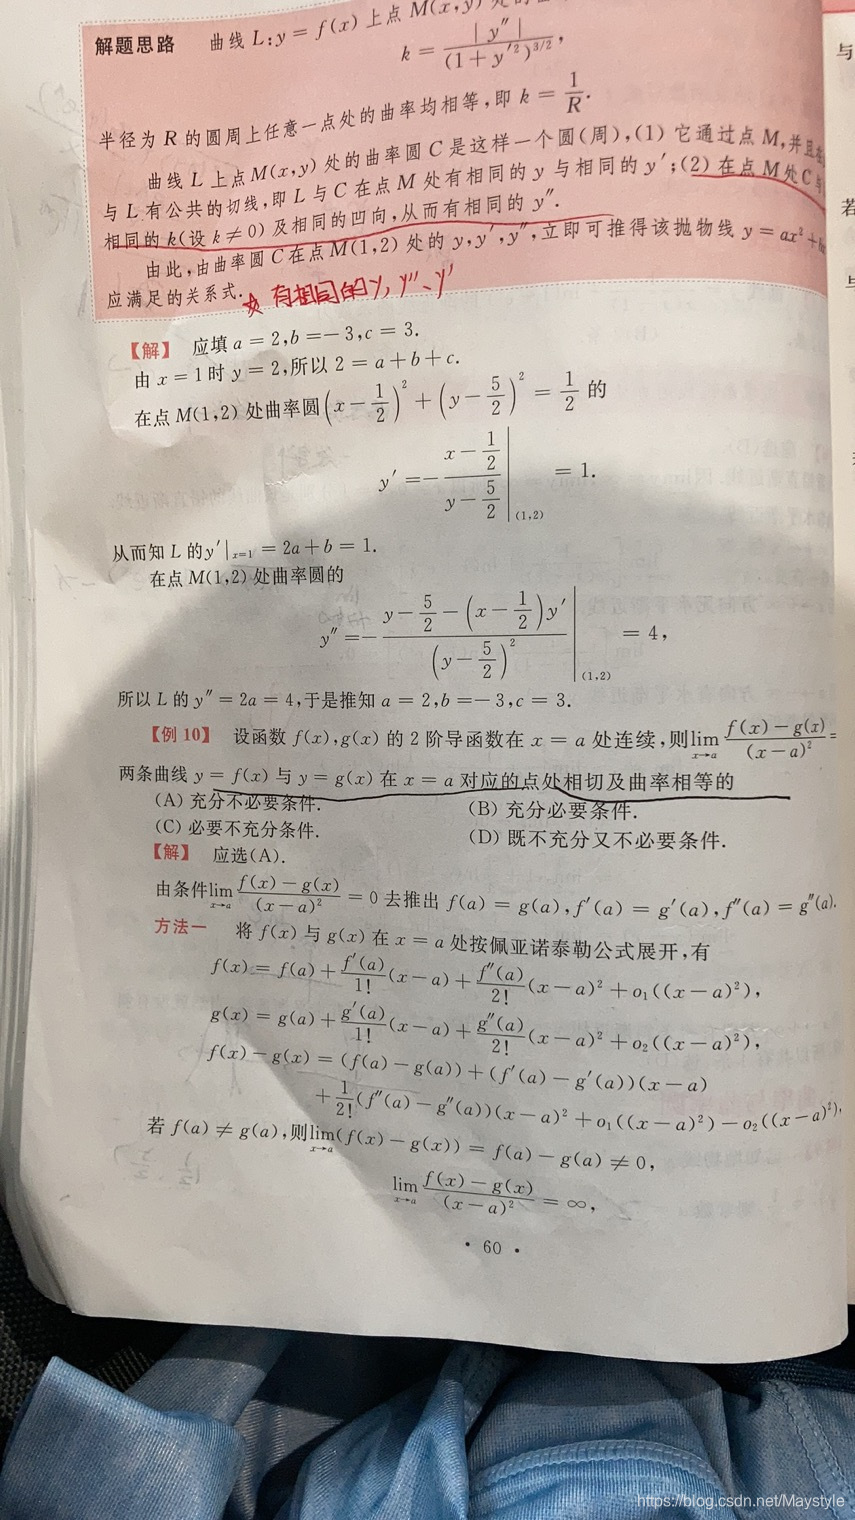 解题思路 曲线 L:y = f(x) 上点 M(x,y) 处的曲
k = | y″ | / (1 + y′²)^{3/2},
半径为 R 的圆周上任意一点处的曲率均相等,即 k = 1/R.
曲线 L 上点 M(x,y) 处的曲率圆 C 是这样一个圆(周),(1) 它通过点 M,并且在
与 L 有公共的切线,即 L 与 C 在点 M 处有相同的 y 与相同的 y′;(2) 在点 M 处 C 与
相同的 k(设 k ≠ 0) 及相同的凹向,从而有相同的 y″.
由此,由曲率圆 C 在点 M(1,2) 处的 y,y′,y″,立即可推得该抛物线 y = ax² +
应满足的关系式.
☆ 有相同的 y, y″、y′
【解】 应填 a = 2,b = −3,c = 3.
由 x = 1 时 y = 2,所以 2 = a + b + c.
在点 M(1,2) 处曲率圆 (x − 1/2)² + (y − 5/2)² = 1/2 的
y′ = − (x − 1/2)/(y − 5/2) |_(1,2) = 1.
从而知 L 的 y′|_{x=1} = 2a + b = 1.
在点 M(1,2) 处曲率圆的
y″ = − (y − 5/2 − (x − 1/2)y′)/(y − 5/2)² |_(1,2) = 4,
所以 L 的 y″ = 2a = 4,于是推知 a = 2,b = −3,c = 3.
【例 10】 设函数 f(x),g(x) 的 2 阶导函数在 x = a 处连续,则 lim_{x→a} (f(x) − g(x))/(x − a)² =
两条曲线 y = f(x) 与 y = g(x) 在 x = a 对应的点处相切及曲率相等的
(A) 充分不必要条件. (B) 充分必要条件.
(C) 必要不充分条件. (D) 既不充分又不必要条件.
【解】 应选(A).
由条件 lim_{x→a} (f(x) − g(x))/(x − a)² = 0 去推出 f(a) = g(a),f′(a) = g′(a),f″(a) = g″(a).
方法一 将 f(x) 与 g(x) 在 x = a 处按佩亚诺泰勒公式展开,有
f(x) = f(a) + f′(a)/1! (x − a) + f″(a)/2! (x − a)² + o₁((x − a)²),
g(x) = g(a) + g′(a)/1! (x − a) + g″(a)/2! (x − a)² + o₂((x − a)²),
f(x) − g(x) = (f(a) − g(a)) + (f′(a) − g′(a))(x − a)
+ 1/2! (f″(a) − g″(a))(x − a)² + o₁((x − a)²) − o₂((x − a)²),
若 f(a) ≠ g(a),则 lim_{x→a} (f(x) − g(x)) = f(a) − g(a) ≠ 0,
lim_{x→a} (f(x) − g(x))/(x − a)² = ∞,
• 60 •
https://blog.csdn.net/Maystyle